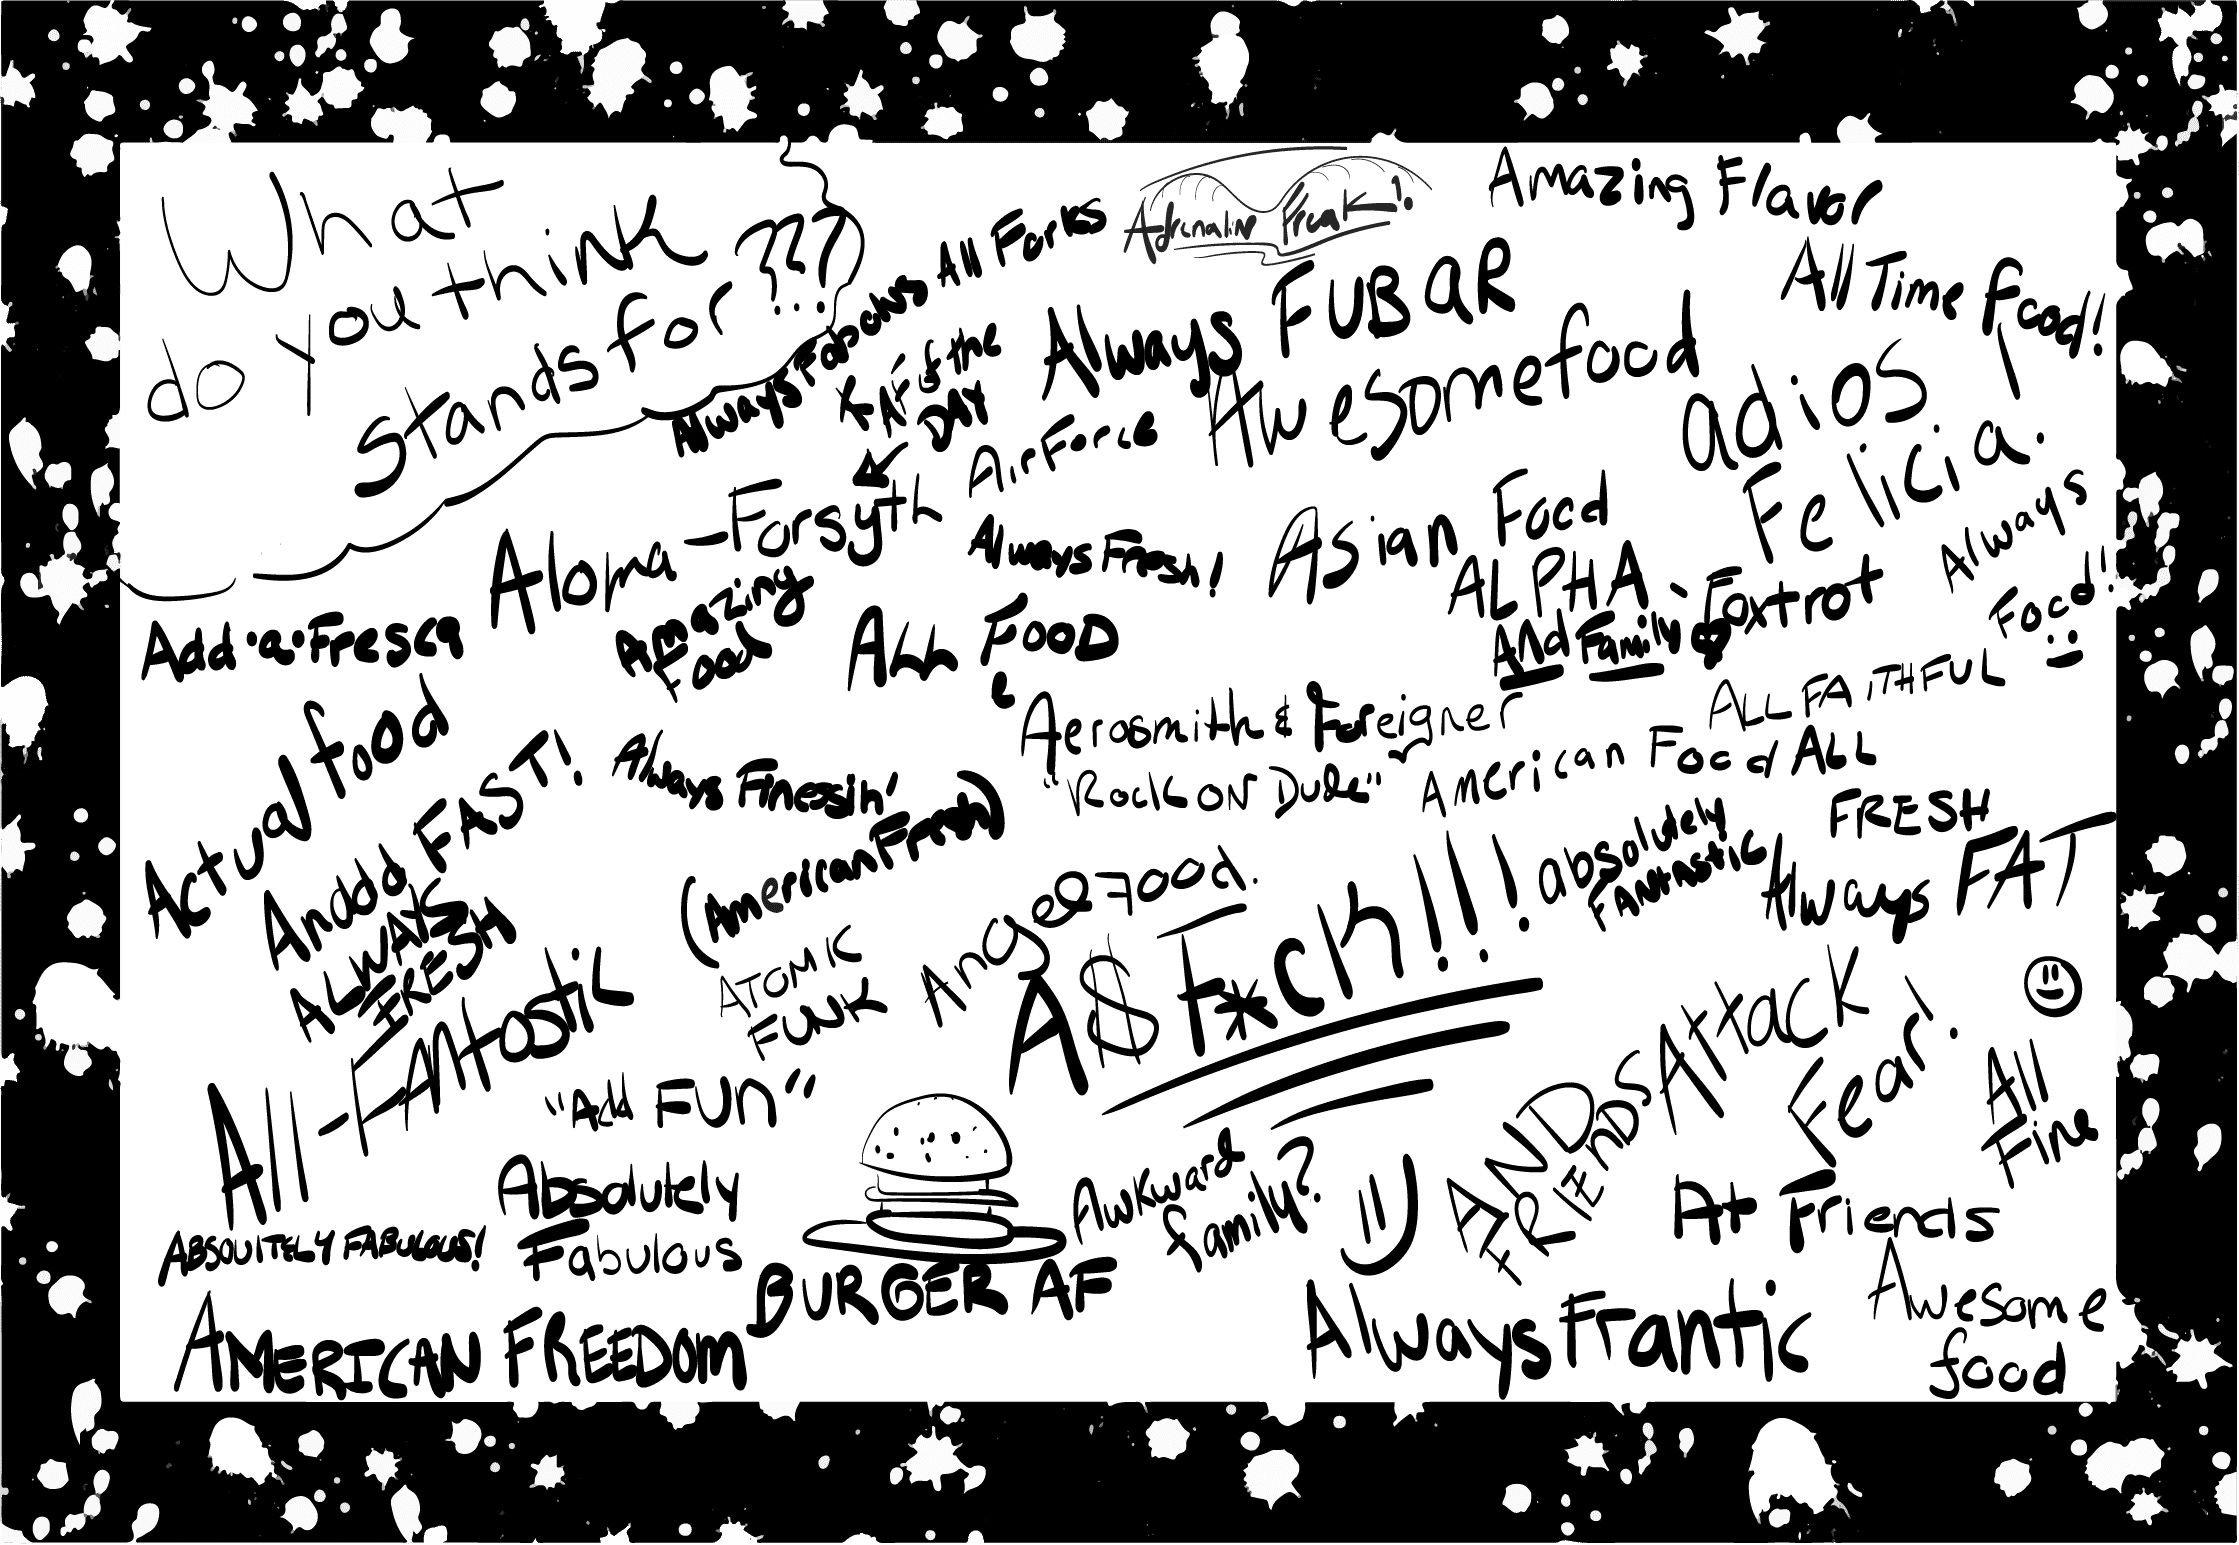 What
do you think
stands for ???
Always Fabolous
All Forks
Adrenaline Freak!
Amazing Flavor
All Time Food!
AF of the
DAY
Always FUBAR
Awesomefood
adios
Felicia.
Air Force
Aloma-Forsyth
Always Fresh!
Asian Food
ALPHA -
Foxtrot
And Family
Always
Food!
Add·a·Fresca
Amazing
Food
ALL FOOD
Aerosmith & Foreigner
"Rock ON Dude"
ALL FAITHFUL
American Food
ALL
FRESH
Actual food
Anddd FAST!
Always Finessin'
(American Fresh)
ALWAYS
FRESH
Angel Food.
absolutely
FANTASTIC
Always FAT
ATOMIC
FUNK
A$ F*ck!!!
All-FANtastic
"Add FUN"
Attack
Fear!
All
Fine
AND
FRIENDS
At Friends
Absolutely
Fabulous
ABSOULTELY FABULOUS!
Awkward
family?
BURGER AF
AMERICAN FREEDOM
Always Frantic
Awesome
food